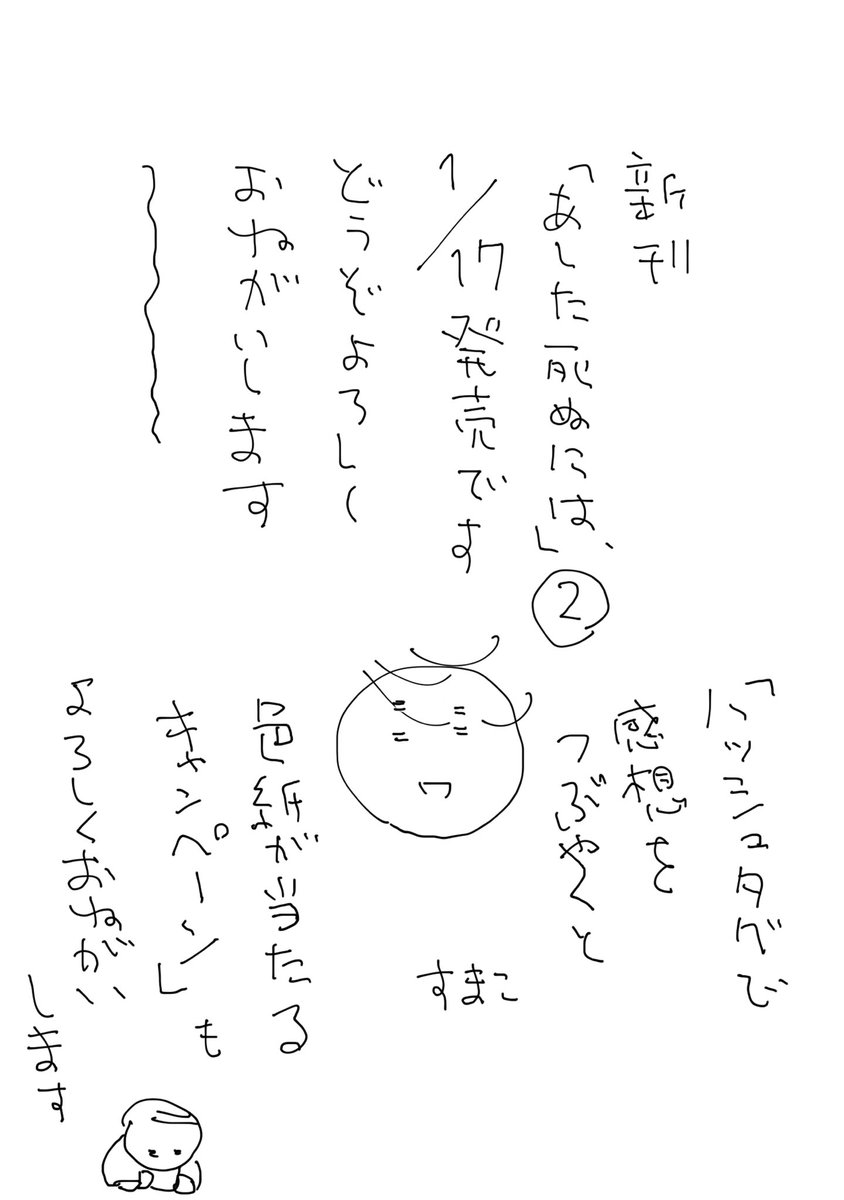 新刊
「あした死ぬには、」②
1/17発売です
どうぞよろしく
おねがいします
「ハッシュタグで
感想を
つぶやくと
色紙が当たる
キャンペーン」も
よろしくおねがい
します
すまこ